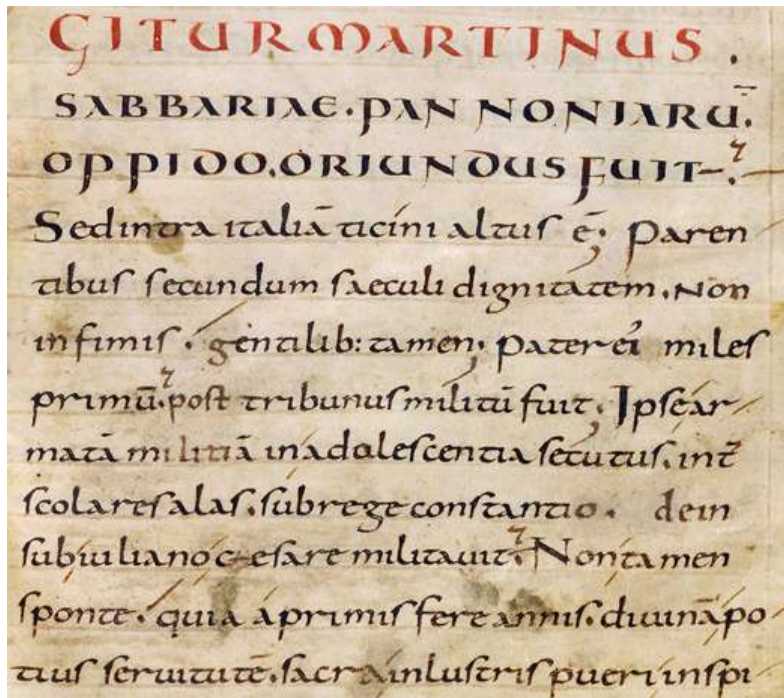 GITUR MARTINUS .
SABBARIAE. PANNONIARŪ.
OPPIDO. ORIUNDUS FUIT.
Sed intra italiā ticini altus ē; Paren
tibus secundum saeculi dignitatem. Non
infimis. gentilib: tamen; Pater ei' miles
primū. post tribunus militū fuit; Ipse ar
matā militiā in adolescentia secutus. int̄
scolares alas. sub rege constantio. dein
sub iuliano cęsare militauit. Non tamen
sponte. quia a primis fere annis. diuinā po
tius seruitutē. sacra inlustris pueri inspi